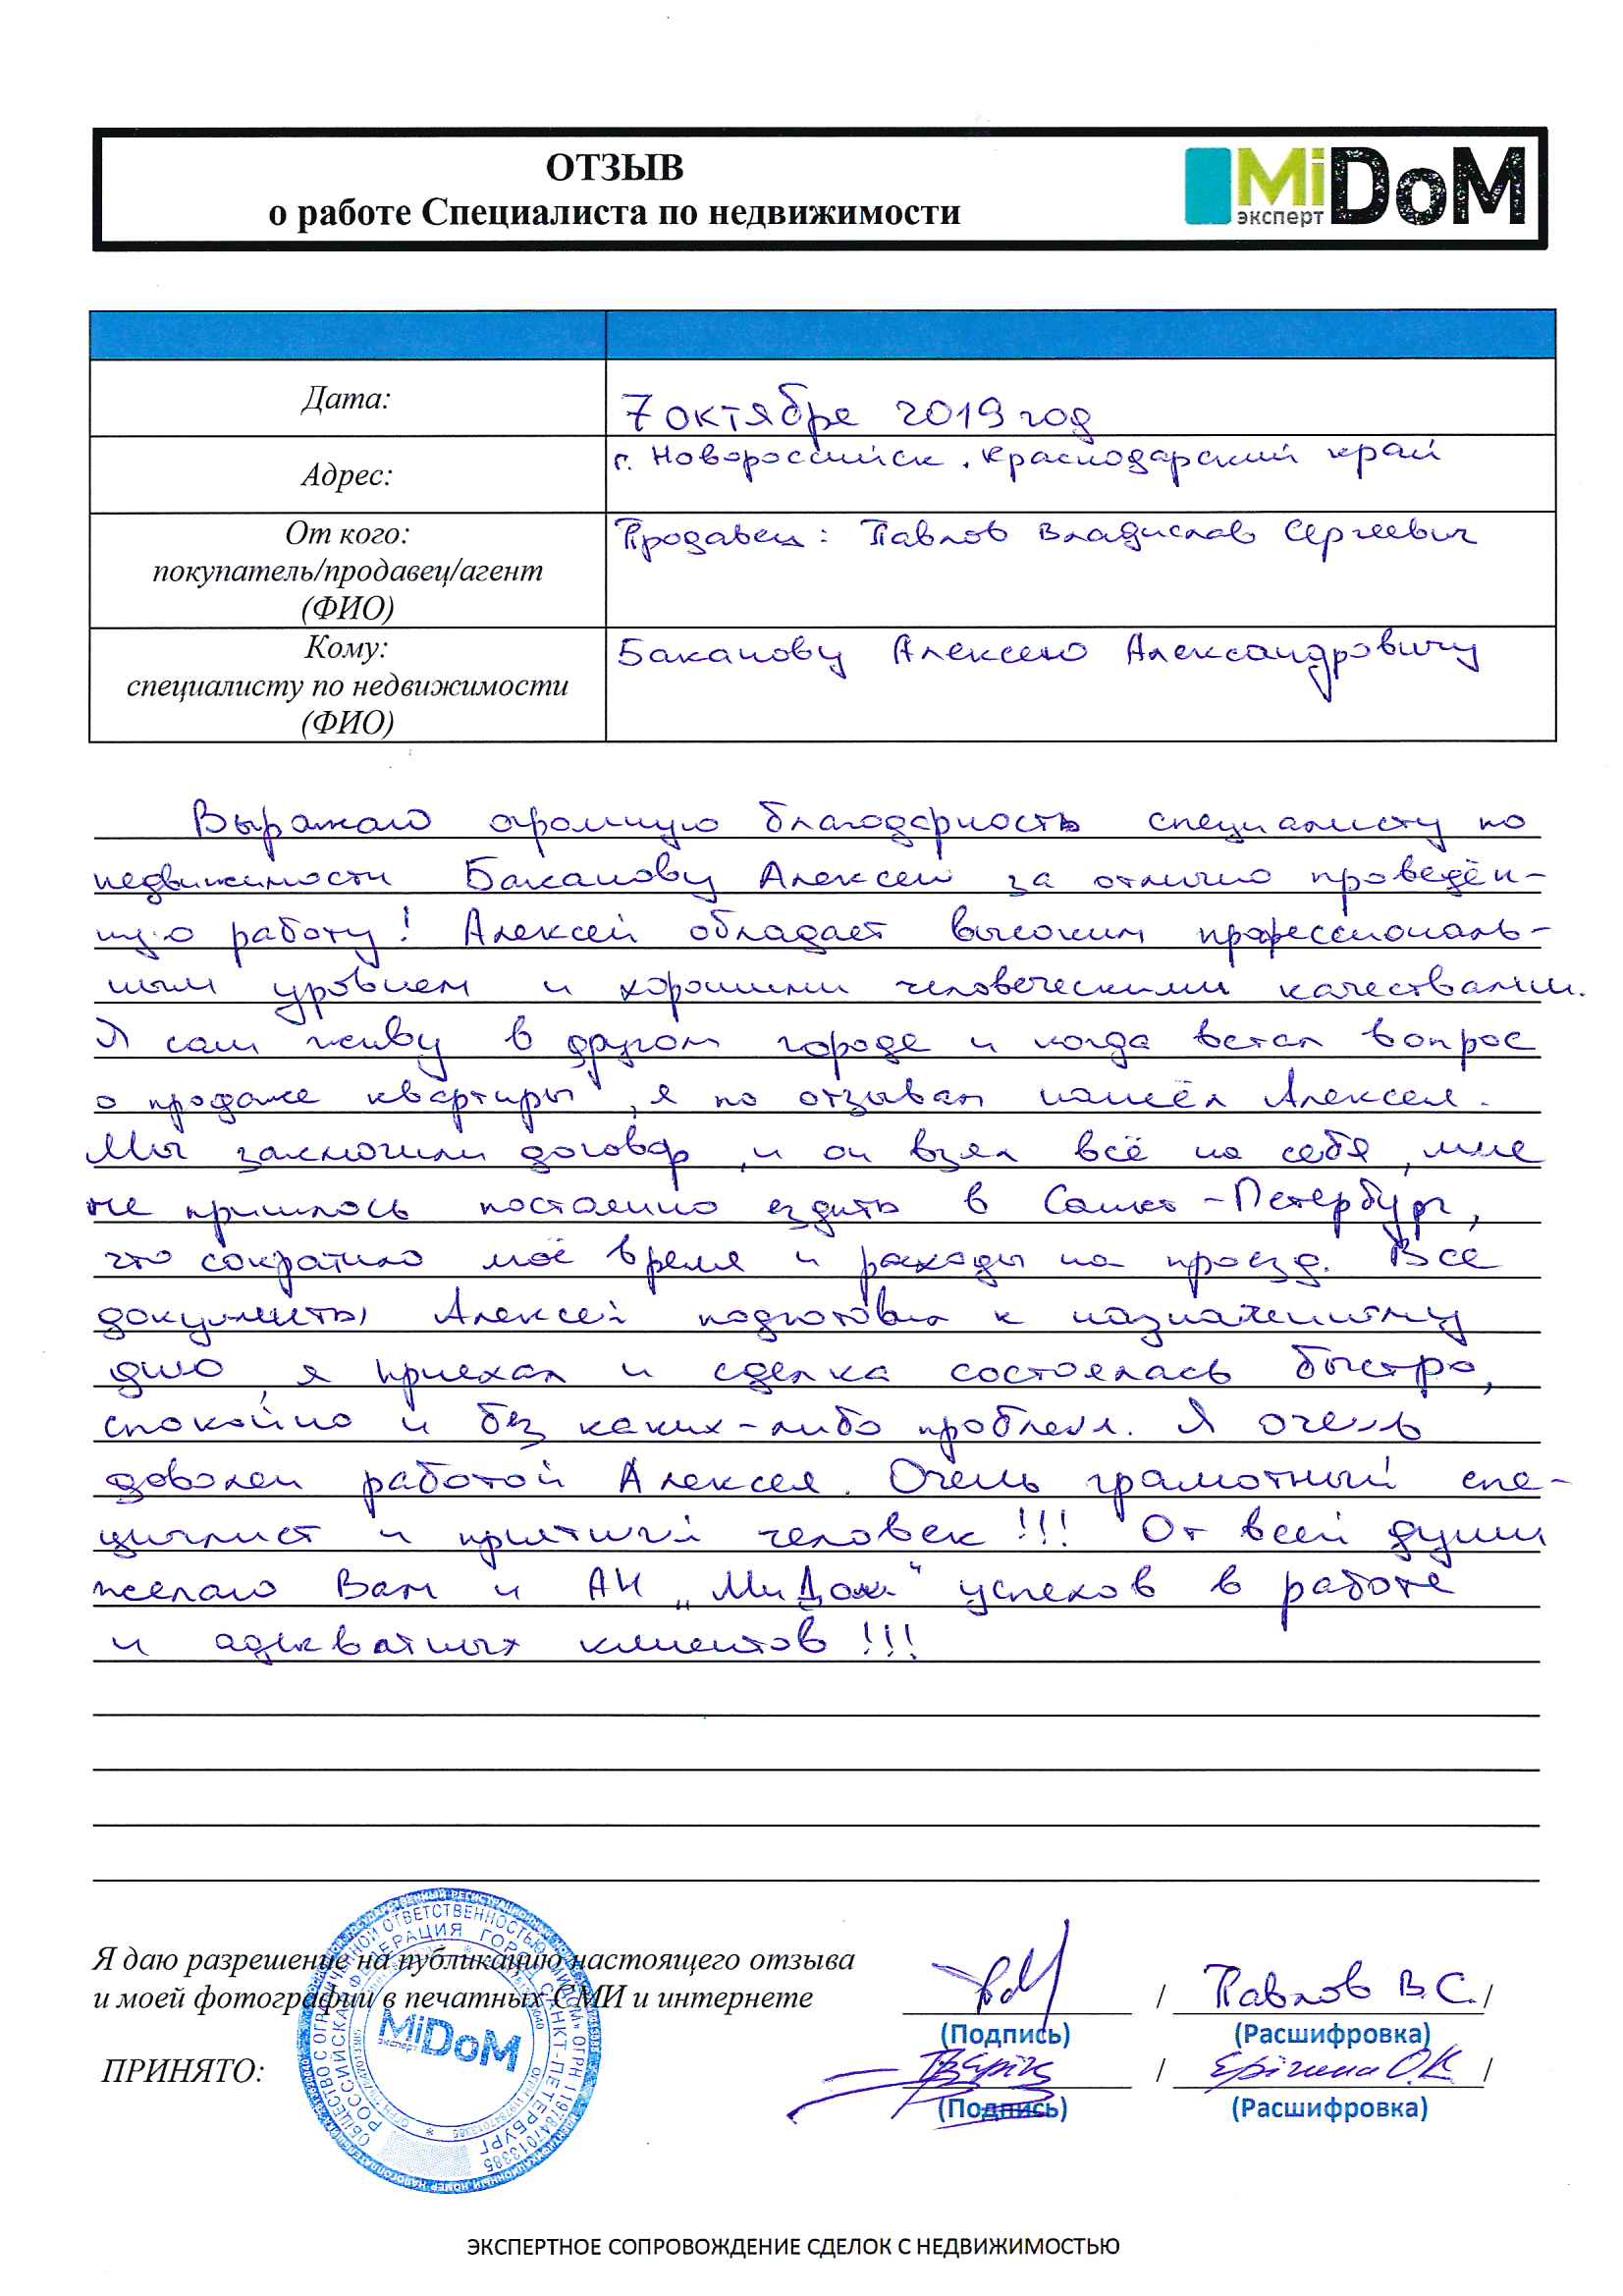 ОТЗЫВ
о работе Специалиста по недвижимости
MiDoM
эксперт
Дата:
7 октября 2019 год
Адрес:
г. Новороссийск. Краснодарский край
От кого:
покупатель/продавец/агент
(ФИО)
Продавец: Павлов Владислав Сергеевич
Кому:
специалисту по недвижимости
(ФИО)
Баканову Алексею Александровичу
Выражаю огромную благодарность специалисту по
недвижимости Баканову Алексею за отлично проведён-
ную работу! Алексей обладает высоким профессиональ-
ным уровнем и хорошими человеческими качествами.
Я сам живу в другом городе и когда встал вопрос
о продаже квартиры, я по отзывам нашёл Алексея.
Мы заключили договор, и он взял всё на себя, мне
не пришлось постоянно ездить в Санкт-Петербург,
что сократило моё время и расходы на проезд. Все
документы Алексей подготовил к назначенному
дню, я приехал и сделка состоялась быстро,
спокойно и без каких-либо проблем. Я очень
доволен работой Алексея. Очень грамотный спе-
циалист и приятный человек!!! От всей души
желаю Вам и АН „МиДом" успехов в работе
и адекватных клиентов!!!
Я даю разрешение на публикацию настоящего отзыва
и моей фотографии в печатных СМИ и интернете
/ Павлов В.С. /
(Подпись) (Расшифровка)
ПРИНЯТО:
/ О.К /
(Подпись) (Расшифровка)
ОБЩЕСТВО С ОГРАНИЧЕННОЙ ОТВЕТСТВЕННОСТЬЮ «МИДОМ» ОГРН 1197847013385
РОССИЙСКАЯ ФЕДЕРАЦИЯ ГОРОД САНКТ-ПЕТЕРБУРГ
MiDoM
эксперт
ЭКСПЕРТНОЕ СОПРОВОЖДЕНИЕ СДЕЛОК С НЕДВИЖИМОСТЬЮ